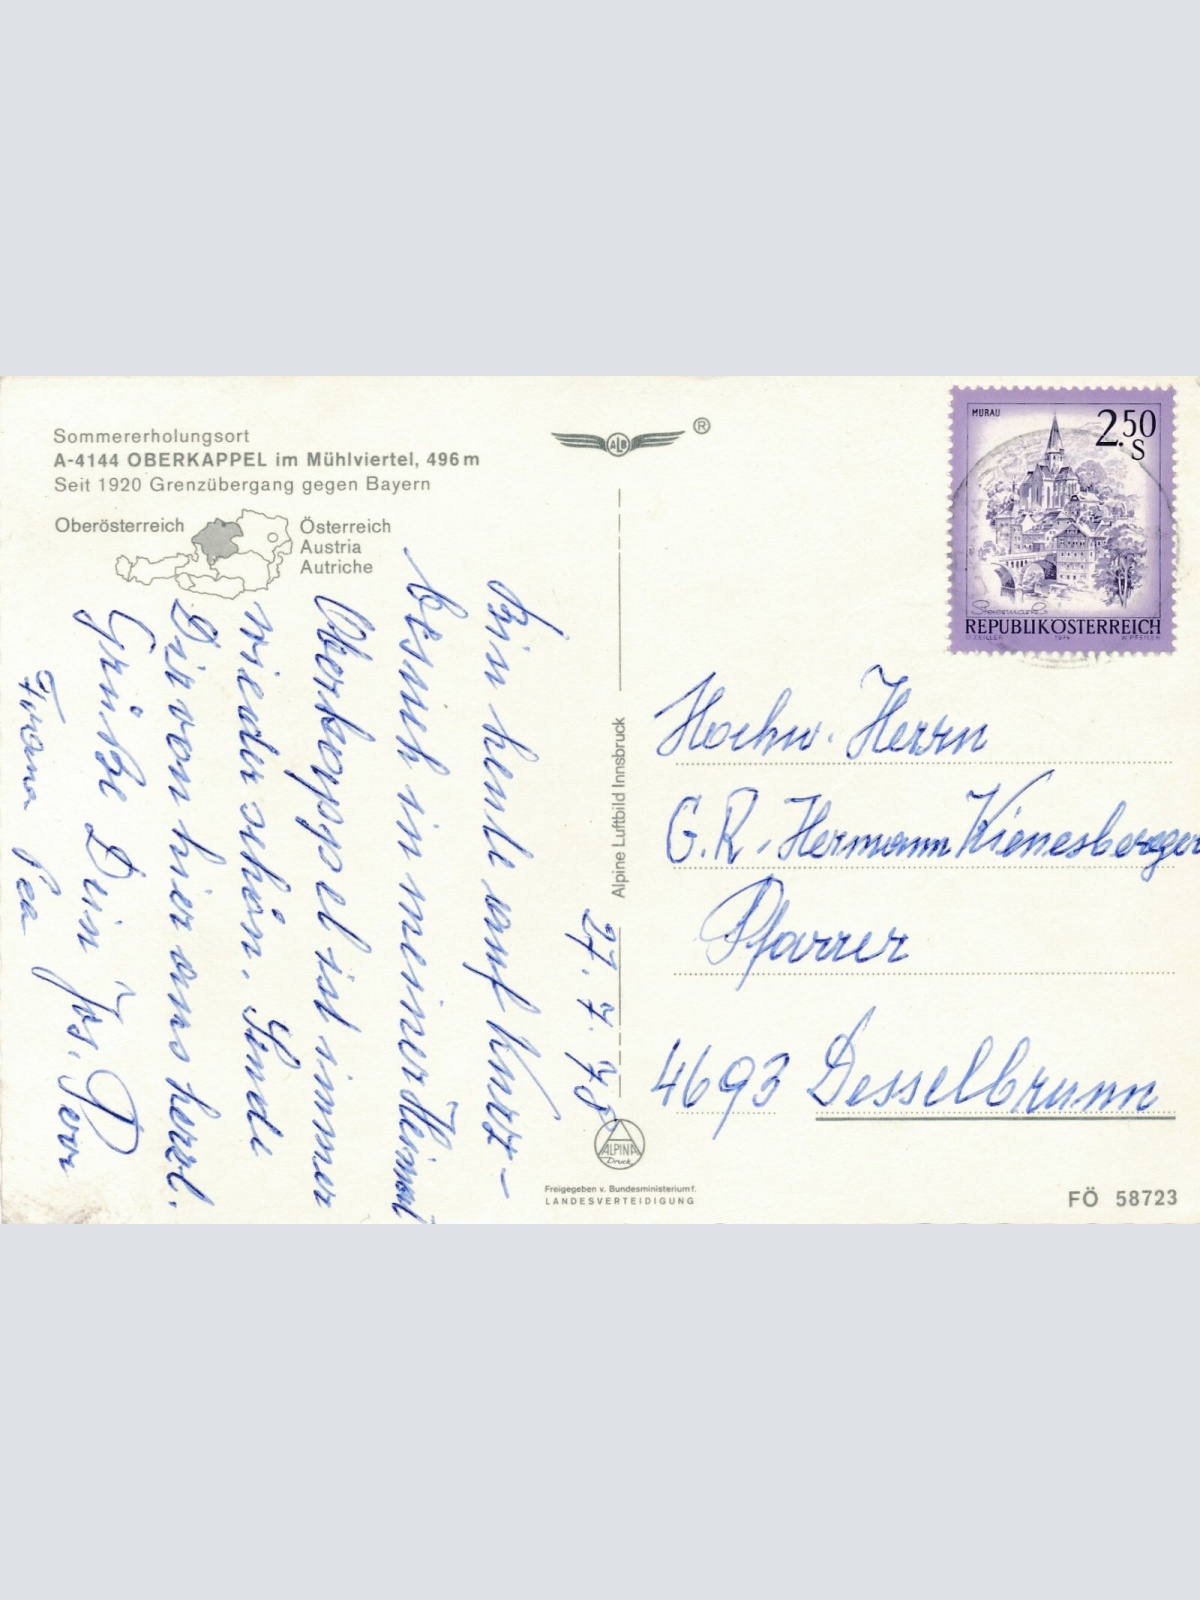 Sommererholungsort
A-4144 OBERKAPPEL im Mühlviertel, 496 m
Seit 1920 Grenzübergang gegen Bayern
Oberösterreich
Österreich
Austria
Autriche
ALB
®
MURAU
2.50
S
Steiermark
REPUBLIK ÖSTERREICH
O. ZEILLER 1974 W. PFEILER
27. 7. 78
Bin heute auf Kurz-
besuch in meiner Heimat
Oberkappel ist immer
wieder schön. Sende
Dir von hier aus herzl.
Grüße Dein Jos.
Alpine Luftbild Innsbruck
Hochw. Herrn
G. R. Hermann Kienesberger
Pfarrer
4693 Desselbrunn
ALPINA
Druck
Freigegeben v. Bundesministerium f.
LANDESVERTEIDIGUNG
FÖ 58723